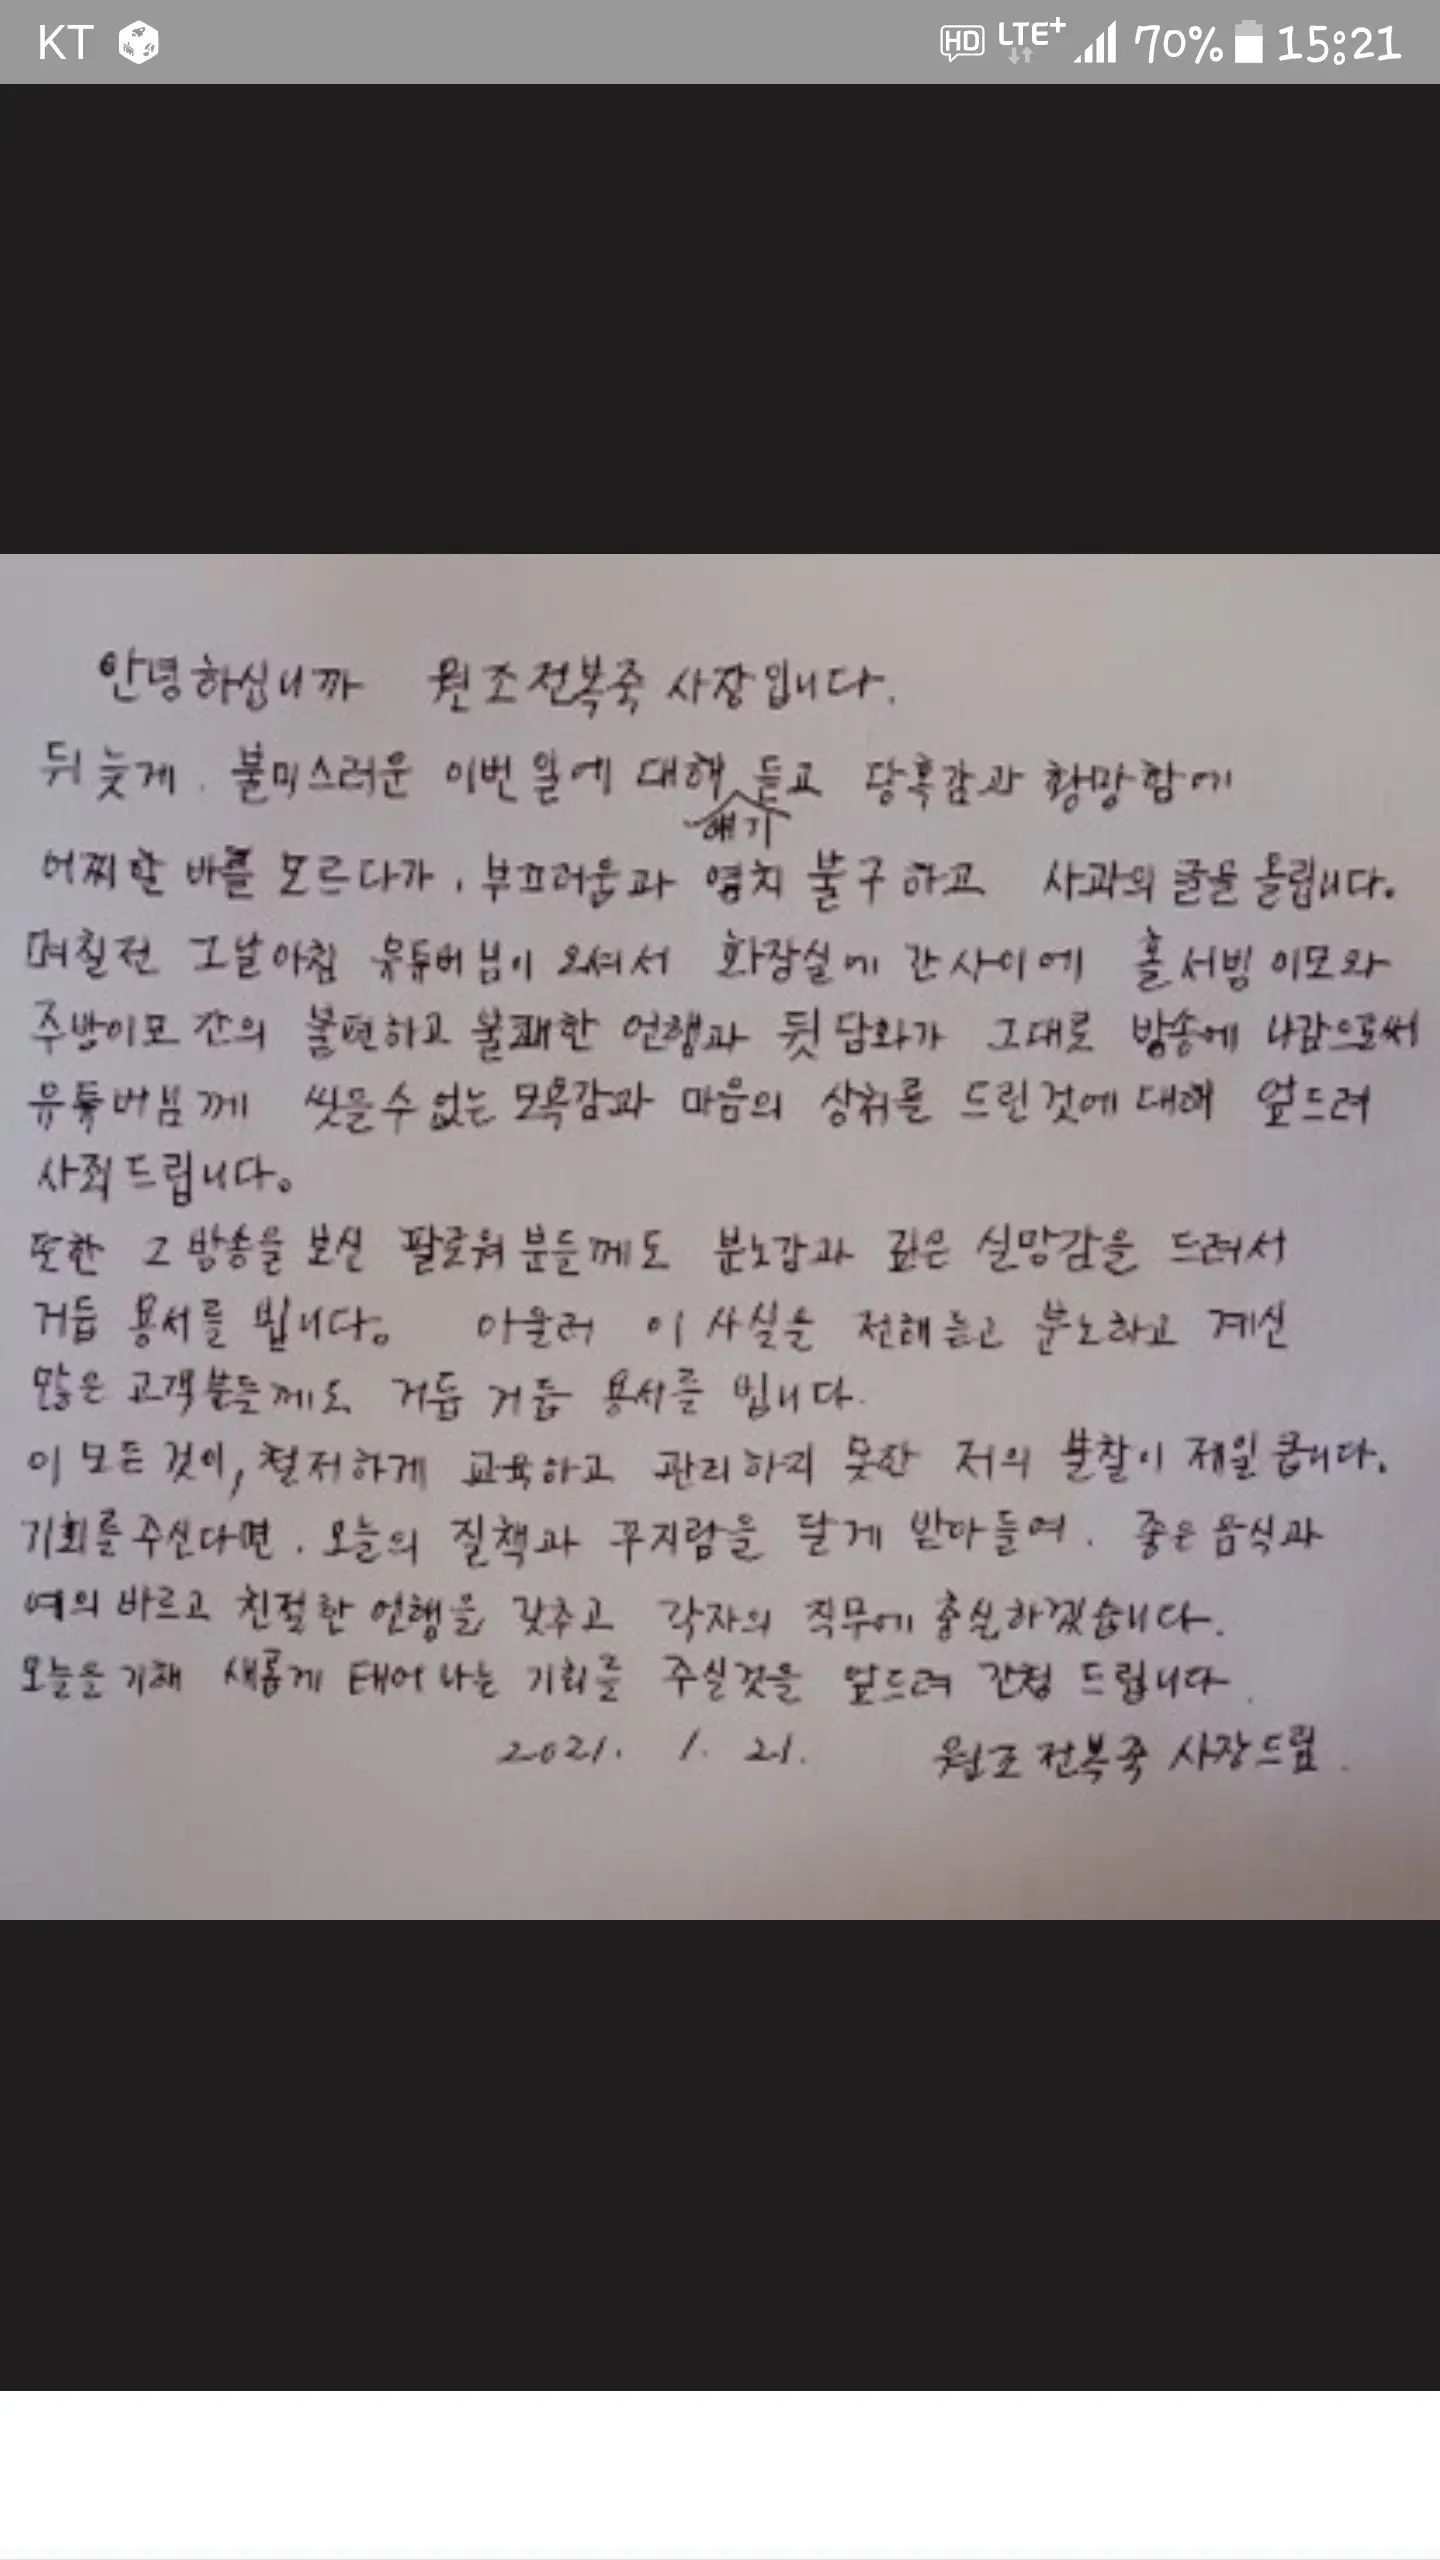 KT HD LTE+ 70% 15:21
안녕하십니까 원조전복죽 사장입니다.
뒤늦게. 불미스러운 이번 일에 대해 듣고 당혹감과 황망함에
얘기
어찌할 바를 모르다가, 부끄러움과 염치 불구하고 사과의 글을 올립니다.
며칠전 그날아침 유튜버님이 오셔서 화장실에 간사이에 홀서빙 이모와
주방이모 간의 불편하고 불쾌한 언행과 뒷담화가 그대로 방송에 나감으로써
유튜버님께 씻을수 없는 모욕감과 마음의 상처를 드린것에 대해 엎드려
사죄드립니다.
또한 그 방송을 보신 팔로워분들께도 분노감과 깊은 실망감을 드려서
거듭 용서를 빕니다. 아울러 이 사실을 전해듣고 분노하고 계신
많은 고객분들께도 거듭 거듭 용서를 빕니다.
이 모든 것이, 철저하게 교육하고 관리하지 못한 저의 불찰이 제일 큽니다.
기회를 주신다면. 오늘의 질책과 꾸지람을 달게 받아들여. 좋은 음식과
예의 바르고 친절한 언행을 갖추고 각자의 직무에 충실하겠습니다.
오늘을 기해 새롭게 태어나는 기회를 주실것을 엎드려 간청 드립니다.
2021. 1. 21. 원조 전복죽 사장드림.